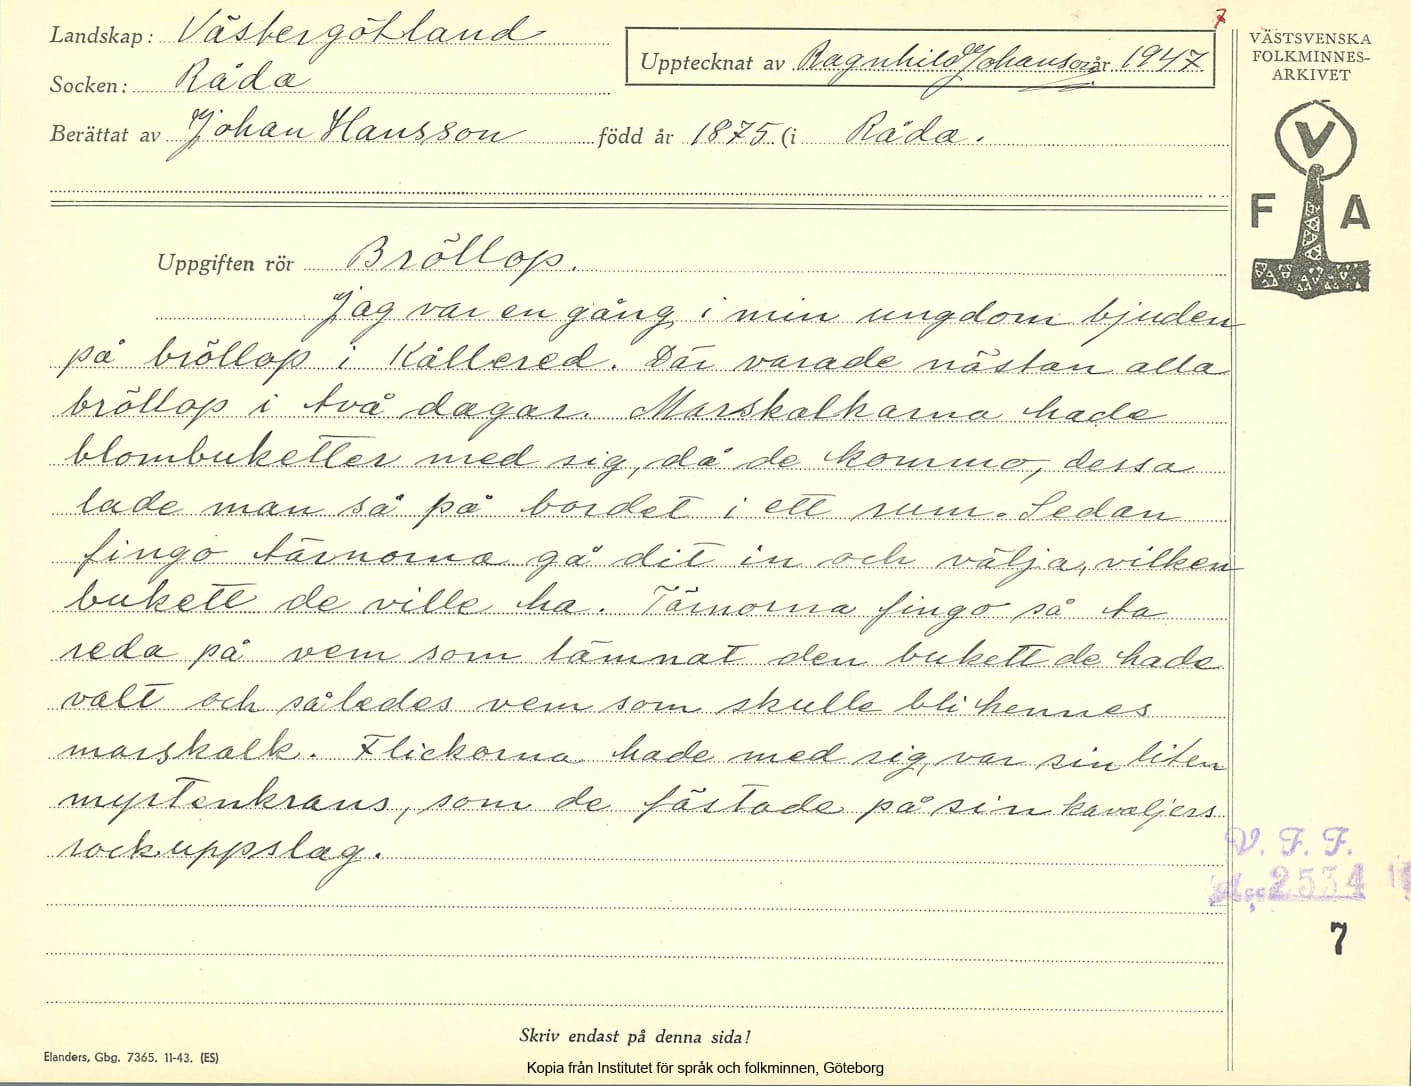 Landskap: Västergötland
Socken: Råda
Upptecknat av Ragnhild Johansson år 1947
7
Berättat av Johan Hansson född år 1875 (i Råda.
VÄSTSVENSKA
FOLKMINNES-
ARKIVET
V
F A
Uppgiften rör Bröllop.
Jag var en gång i min ungdom bjuden
på bröllop i Kållered. Där varade nästan alla
bröllop i två dagar. Marskalkarna hade
blombuketter med sig, då de kommo, dessa
lade man så på bordet i ett rum. Sedan
fingo tärnorna gå dit in och välja, vilken
bukett de ville ha. Tärnorna fingo så ta
reda på vem som lämnat den bukett de hade
valt och således vem som skulle bli hennes
marskalk. Flickorna hade med sig var sin liten
myrtenkrans, som de fästade på sin kavaljers
rockuppslag.
V. F. F.
Acc 2534
7
Skriv endast på denna sida!
Elanders, Gbg. 7365. 11-43. (ES)
Kopia från Institutet för språk och folkminnen, Göteborg